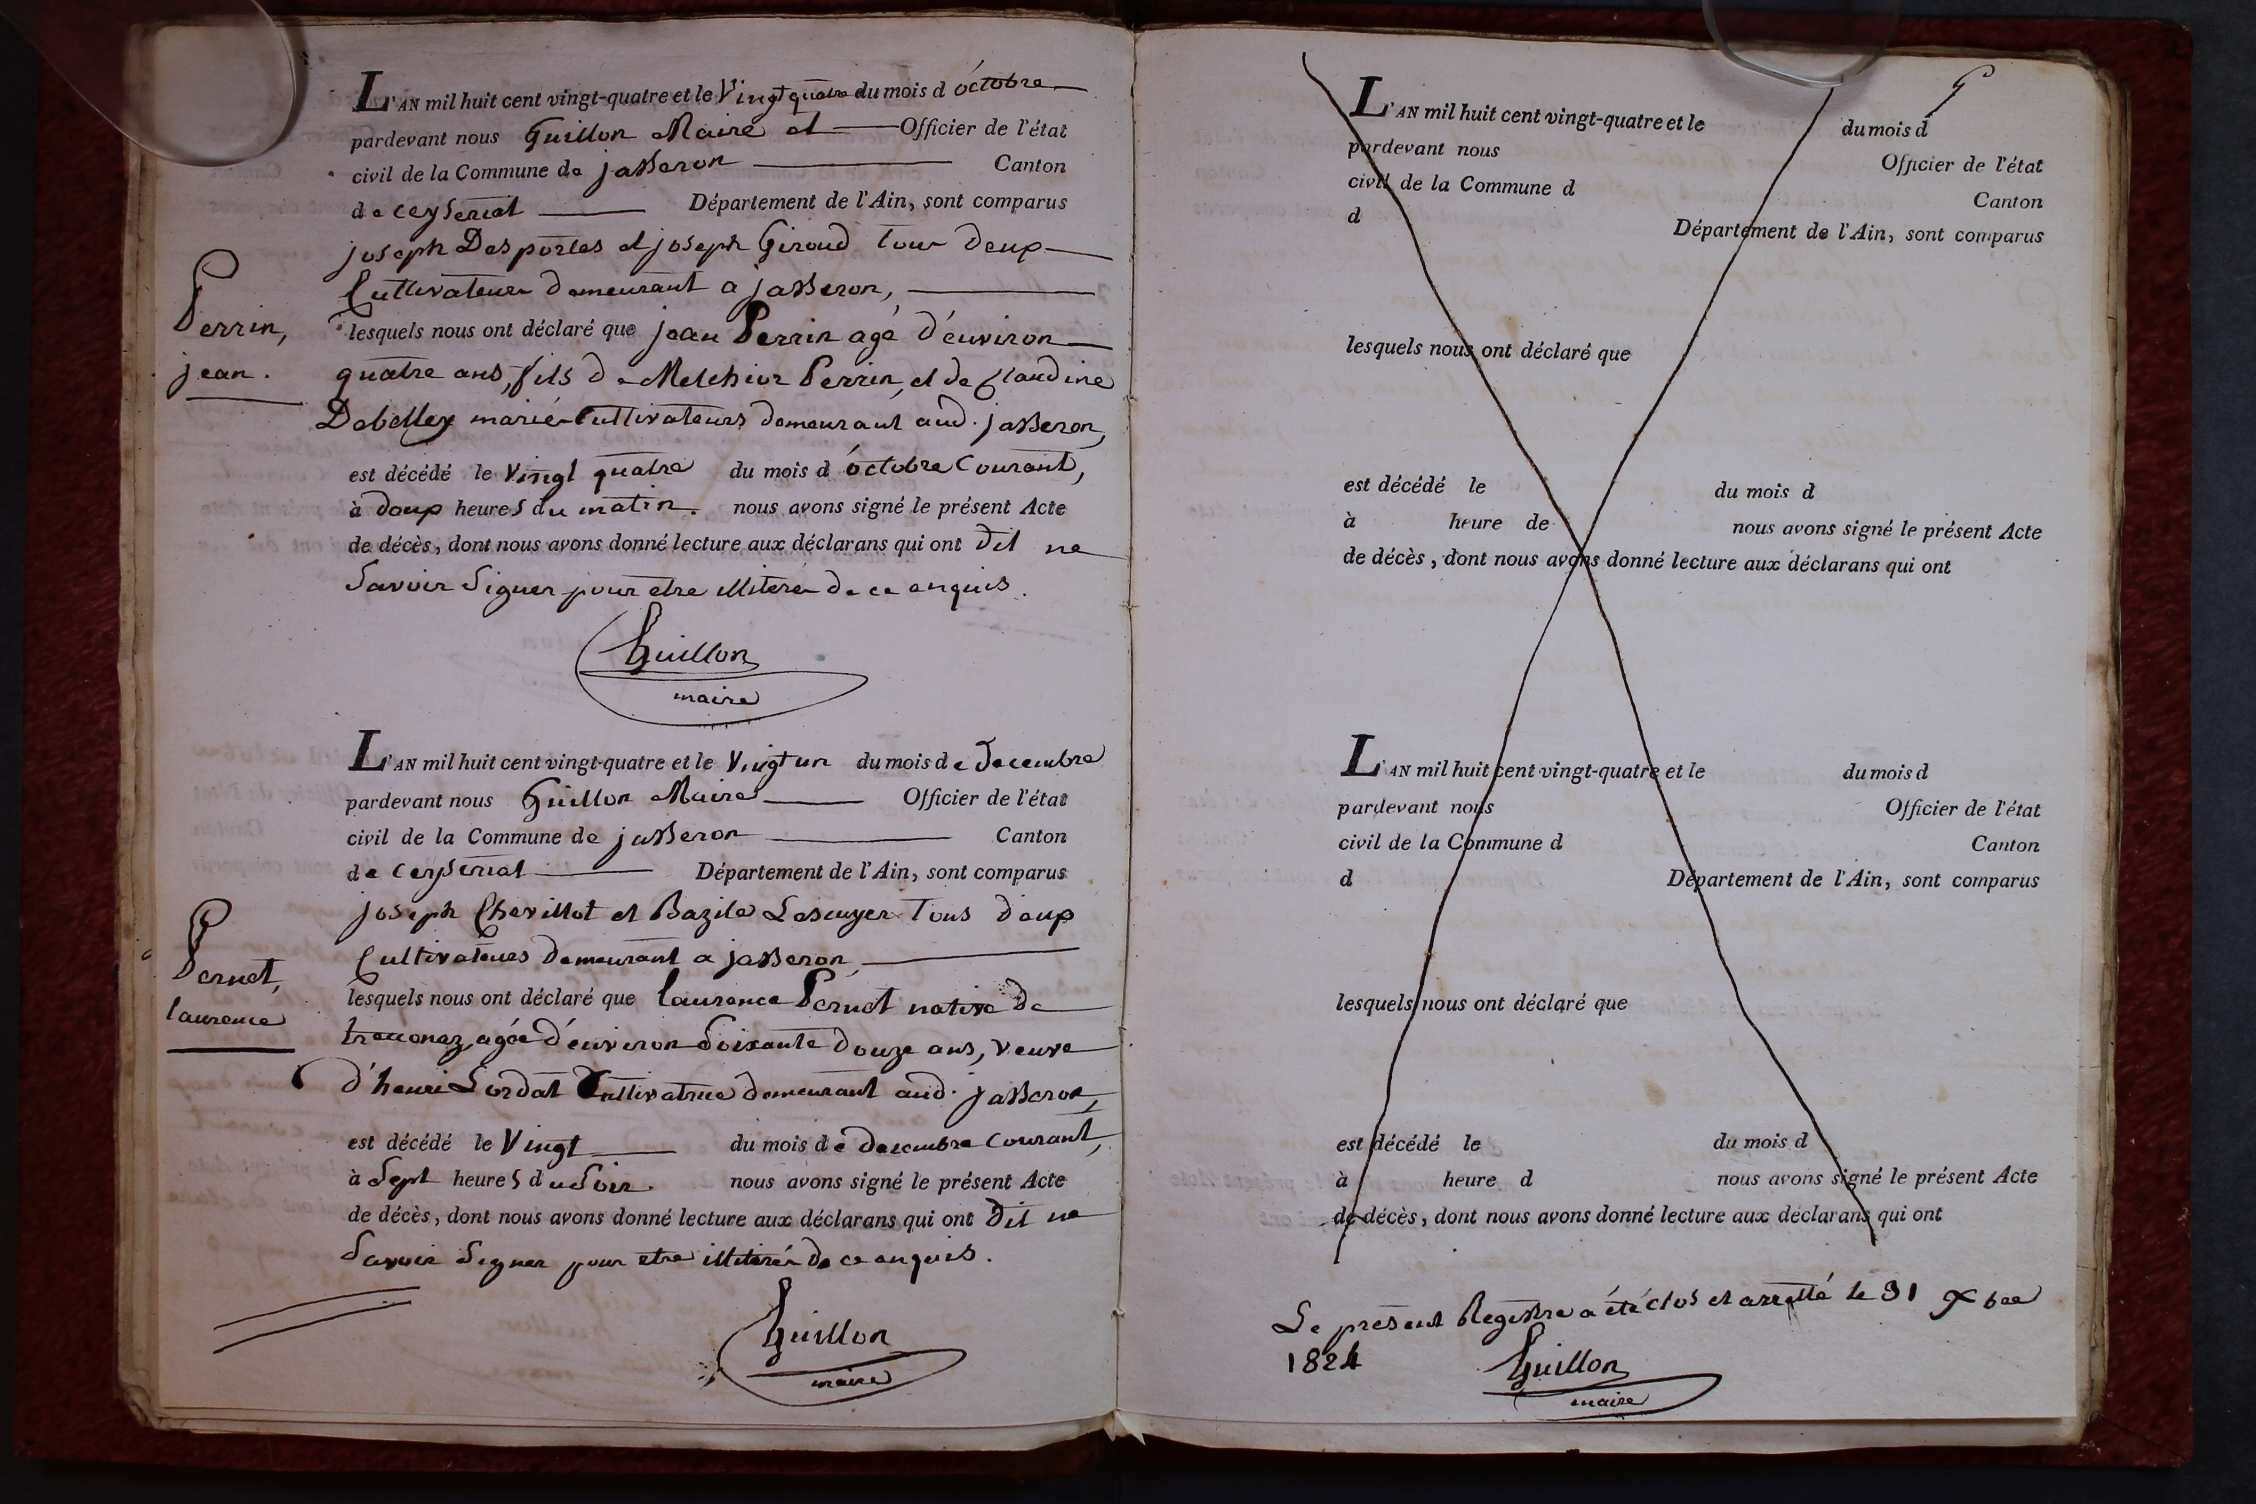 L'AN mil huit cent vingt-quatre et le Vingt quatre du mois d'octobre
pardevant nous Guillon Maire et Officier de l'état
civil de la Commune de jasseron Canton
de ceyseriat Département de l'Ain, sont comparus
joseph Desportes et joseph Giroud tous deux
Cultivateurs demeurant a jasseron,
Perrin,
jean.
lesquels nous ont déclaré que jean Perrin agé d'environ
quatre ans, fils de Melchior Perrin, et de Claudine
Debelley mariés Cultivateurs demeurant aud. jasseron,
est décédé le Vingt quatre du mois d'octobre Courant,
à deux heures du matin. nous avons signé le présent Acte
de décès, dont nous avons donné lecture aux déclarans qui ont dit ne
Savoir Signer pour etre illiterés de ce enquis.
Guillon
maire
L'AN mil huit cent vingt-quatre et le Vingt un du mois de decembre
pardevant nous Guillon Maire Officier de l'état
civil de la Commune de jasseron Canton
de Ceyseriat Département de l'Ain, sont comparus
joseph Chevillot et Bazile Lescuyer Tous deux
Cultivateurs demeurant a jasseron,
Pernet,
laurence
lesquels nous ont déclaré que laurence Pernet native de
agée d'environ Soixante douze ans, Veuve
d'henri Lordat Cultivatrice demeurant aud. jasseron,
est décédé le Vingt du mois de decembre Courant,
à Sept heures du Soir. nous avons signé le présent Acte
de décès, dont nous avons donné lecture aux déclarans qui ont dit ne
Savoir Signer pour etre illiterés de ce enquis.
Guillon
maire
L'AN mil huit cent vingt-quatre et le du mois d
pardevant nous Officier de l'état
civil de la Commune d Canton
d Département de l'Ain, sont comparus
lesquels nous ont déclaré que
est décédé le du mois d
à heure de nous avons signé le présent Acte
de décès, dont nous avons donné lecture aux déclarans qui ont
L'AN mil huit cent vingt-quatre et le du mois d
pardevant nous Officier de l'état
civil de la Commune d Canton
d Département de l'Ain, sont comparus
lesquels nous ont déclaré que
est décédé le du mois d
à heure d nous avons signé le présent Acte
de décès, dont nous avons donné lecture aux déclarans qui ont
Le présent Registre a été clos et arretté le 31 Xbre
1824
Guillon
maire